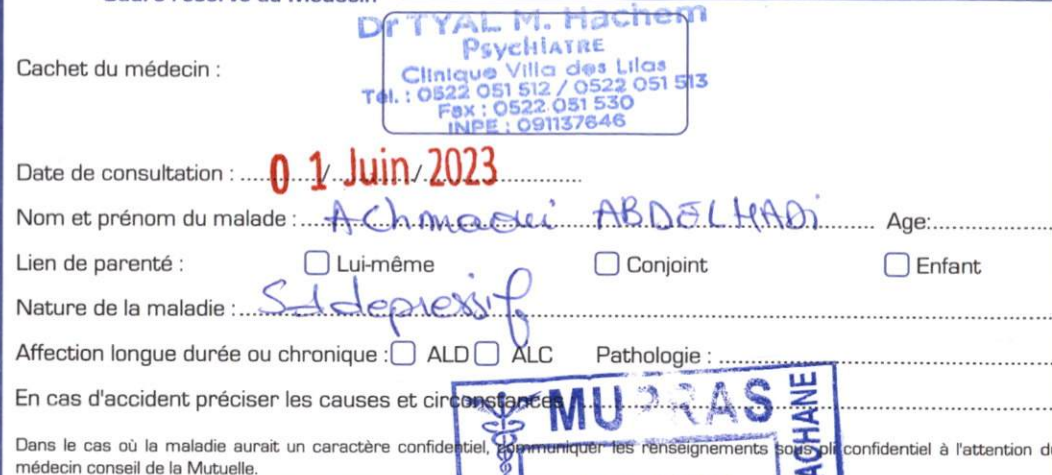 Cadre réservé au Médecin
Dr TYAL M. Hachem
PSYCHIATRE
Clinique Villa des Lilas
Tél. : 0522 051 512 / 0522 051 513
Fax : 0522 051 530
INPE : 091137646
Cachet du médecin :
Date de consultation : 01 / Juin / 2023
Nom et prénom du malade : AChmaoui ABDELHADi Age:
Lien de parenté : Lui-même Conjoint Enfant
Nature de la maladie : Sd depressif
Affection longue durée ou chronique : ALD ALC Pathologie :
En cas d'accident préciser les causes et circonstances
MUPRAS
ACHANE
Dans le cas où la maladie aurait un caractère confidentiel, communiquer les renseignements sous pli confidentiel à l'attention d
médecin conseil de la Mutuelle.